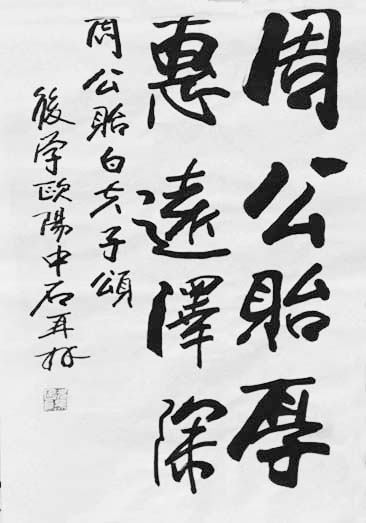 周公貽厚
惠遠澤深
周公貽白夫子頌
後学歐陽中石再拜